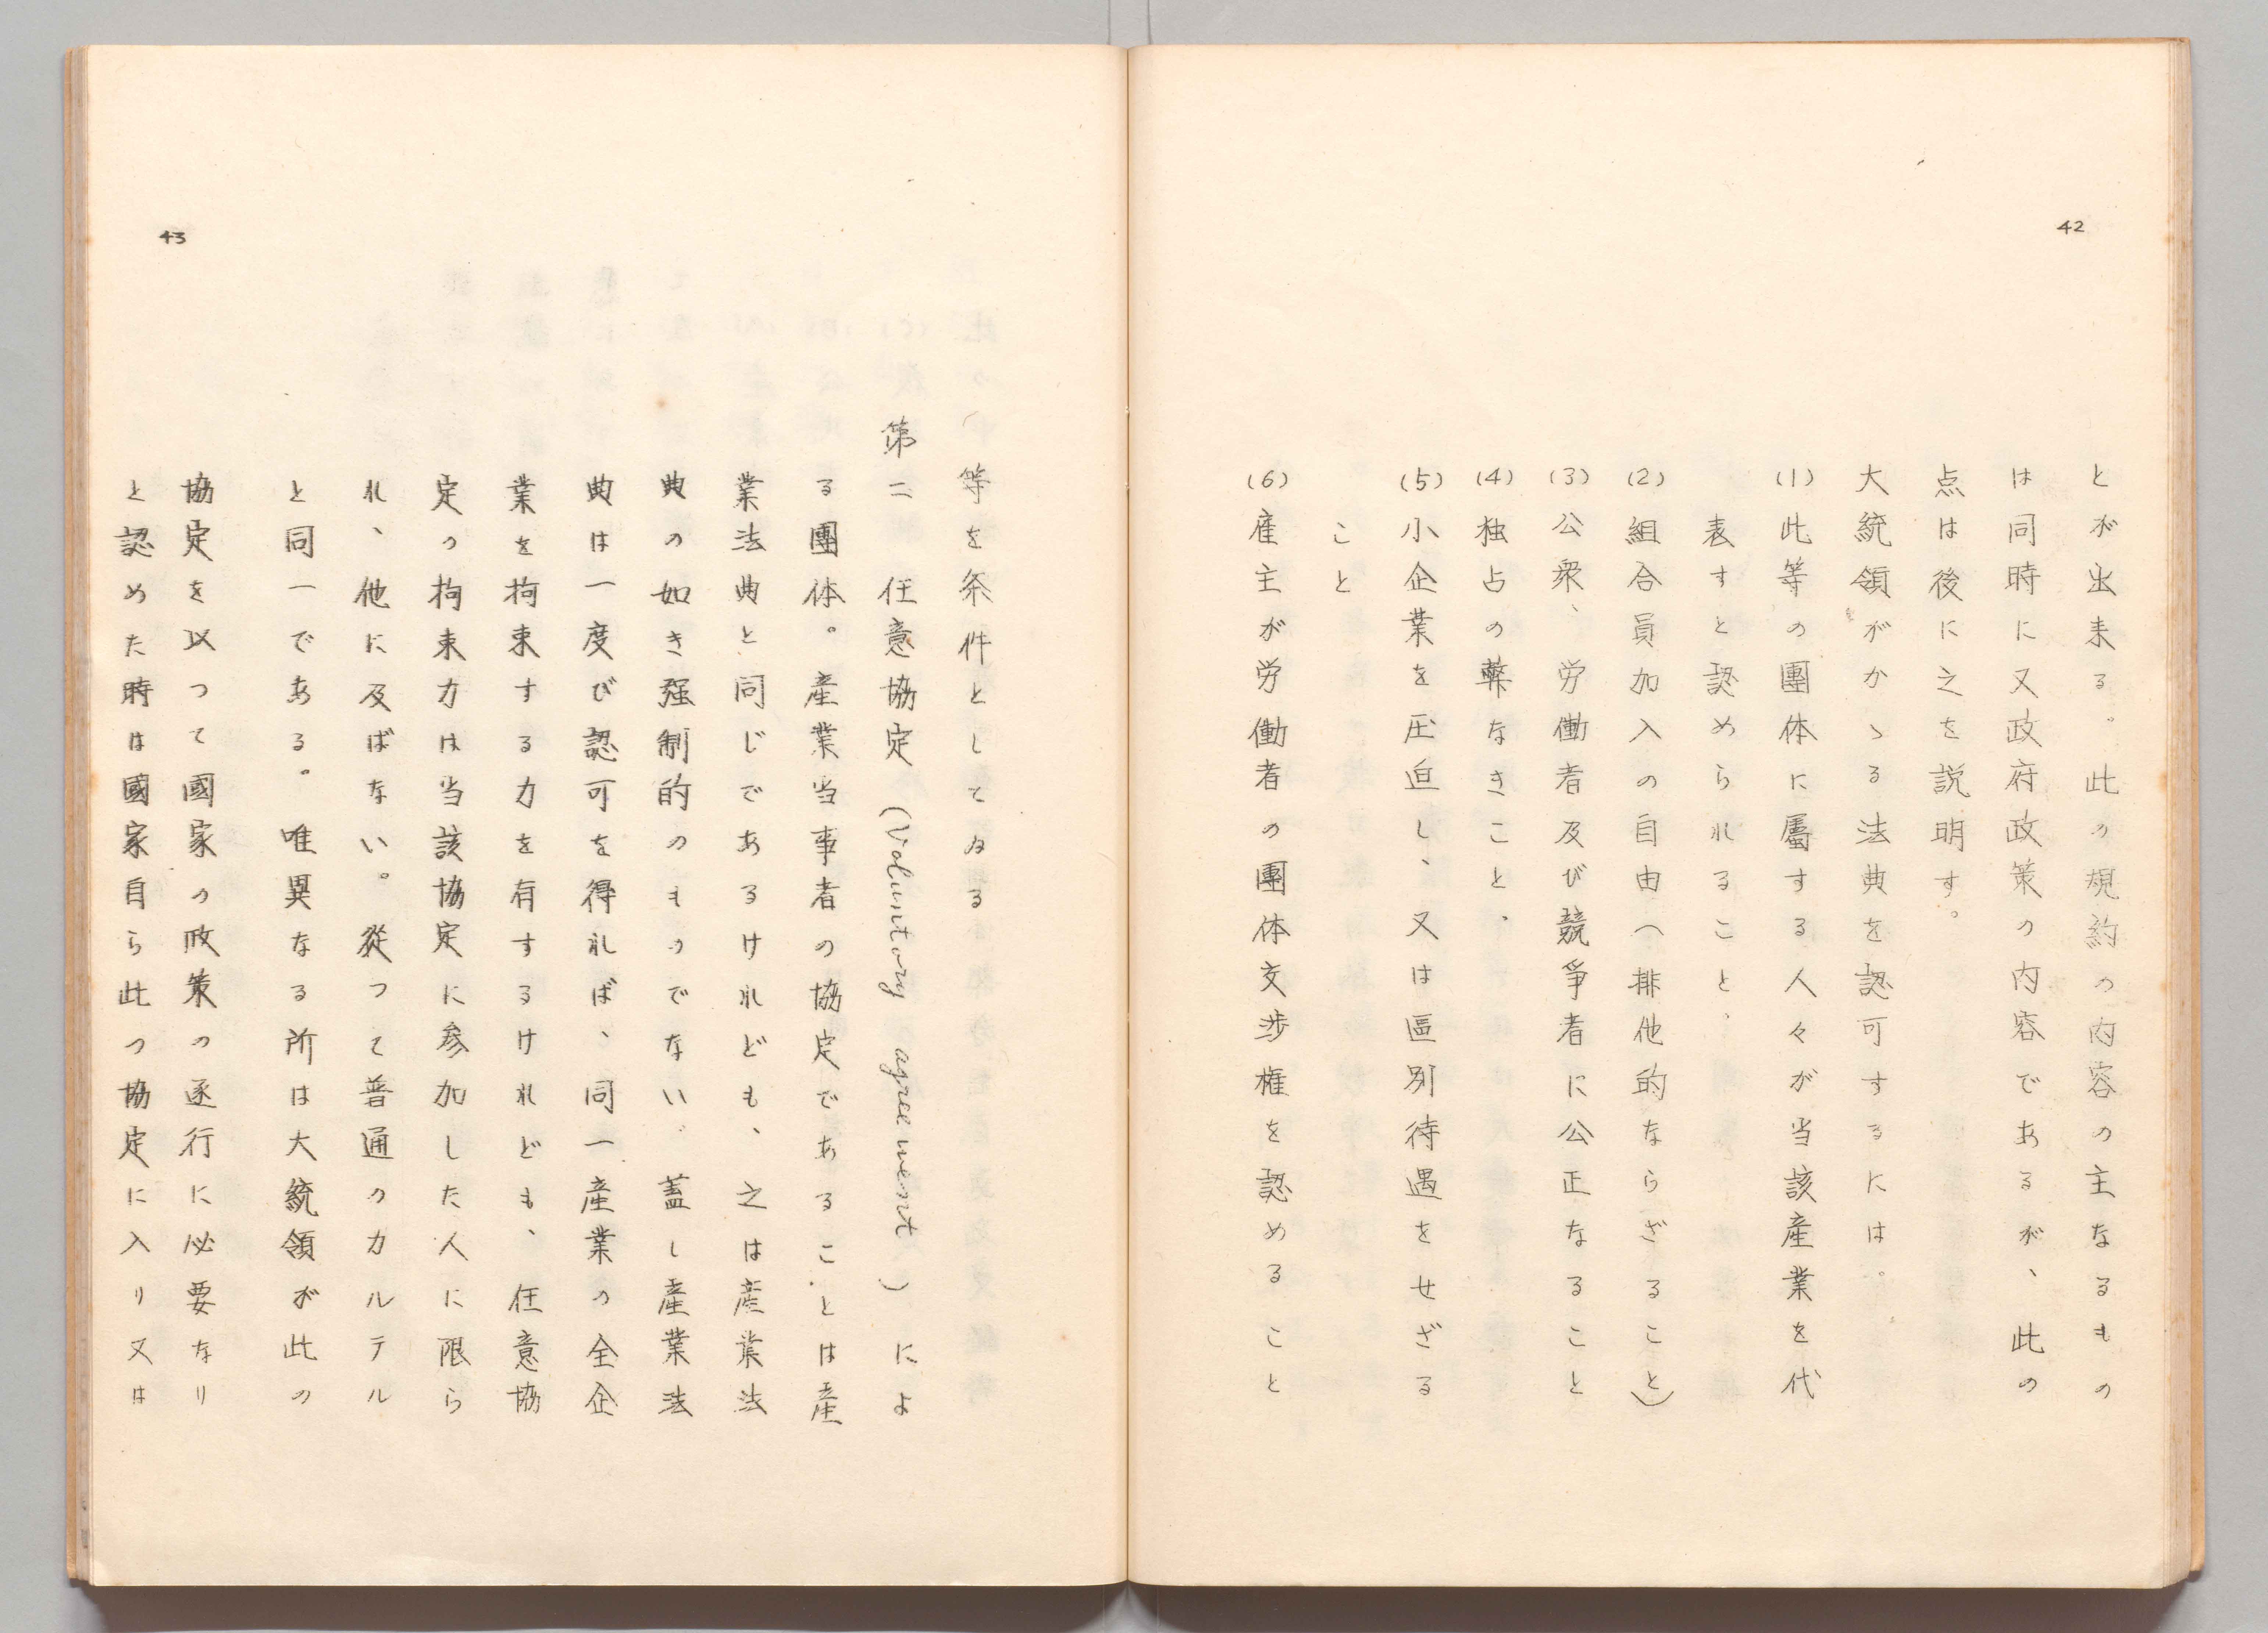 42
とが出来る。此の規約の内容の主なるもの
は同時に又政府政策の内容であるが、此の
点は後に之を説明す。
大統領がかゝる法典を認可するには。
(1)此等の團体に屬する人々が当該産業を代
表すと認められること、
(2)組合員加入の自由(排他的ならざること)
(3)公衆、労働者及び競爭者に公正なること
(4)独占の弊なきこと、
(5)小企業を圧迫し、又は區別待遇をせざる
こと
(6)雇主が労働者の團体交渉権を認めること
43
等を条件としてゐる
第二 任意協定 (Voluntory agreement) によ
る團体。産業当事者の協定であることは産
業法典と同じであるけれども、之は産業法
典の如き强制的のものでない、蓋し産業法
典は一度び認可を得れば、同一産業の全企
業を拘束する力を有するけれども、任意協
定の拘束力は当該協定に参加した人に限ら
れ、他に及ばない。從つて普通のカルテル
と同一である。唯異なる所は大統領が此の
協定を以つて國家の政策の遂行に必要なり
と認めた時は國家自ら此の協定に入り又は